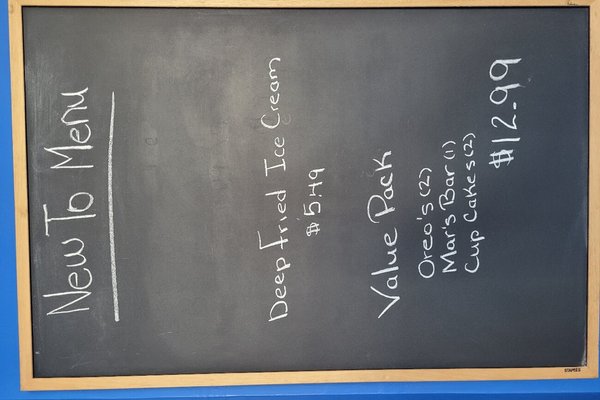 New To Menu
Deep Fried Ice Cream
$5.49
Value Pack
Oreo's (2)
Mar's Bar (1)
Cup Cakes (2)
$12.99
STAPLES